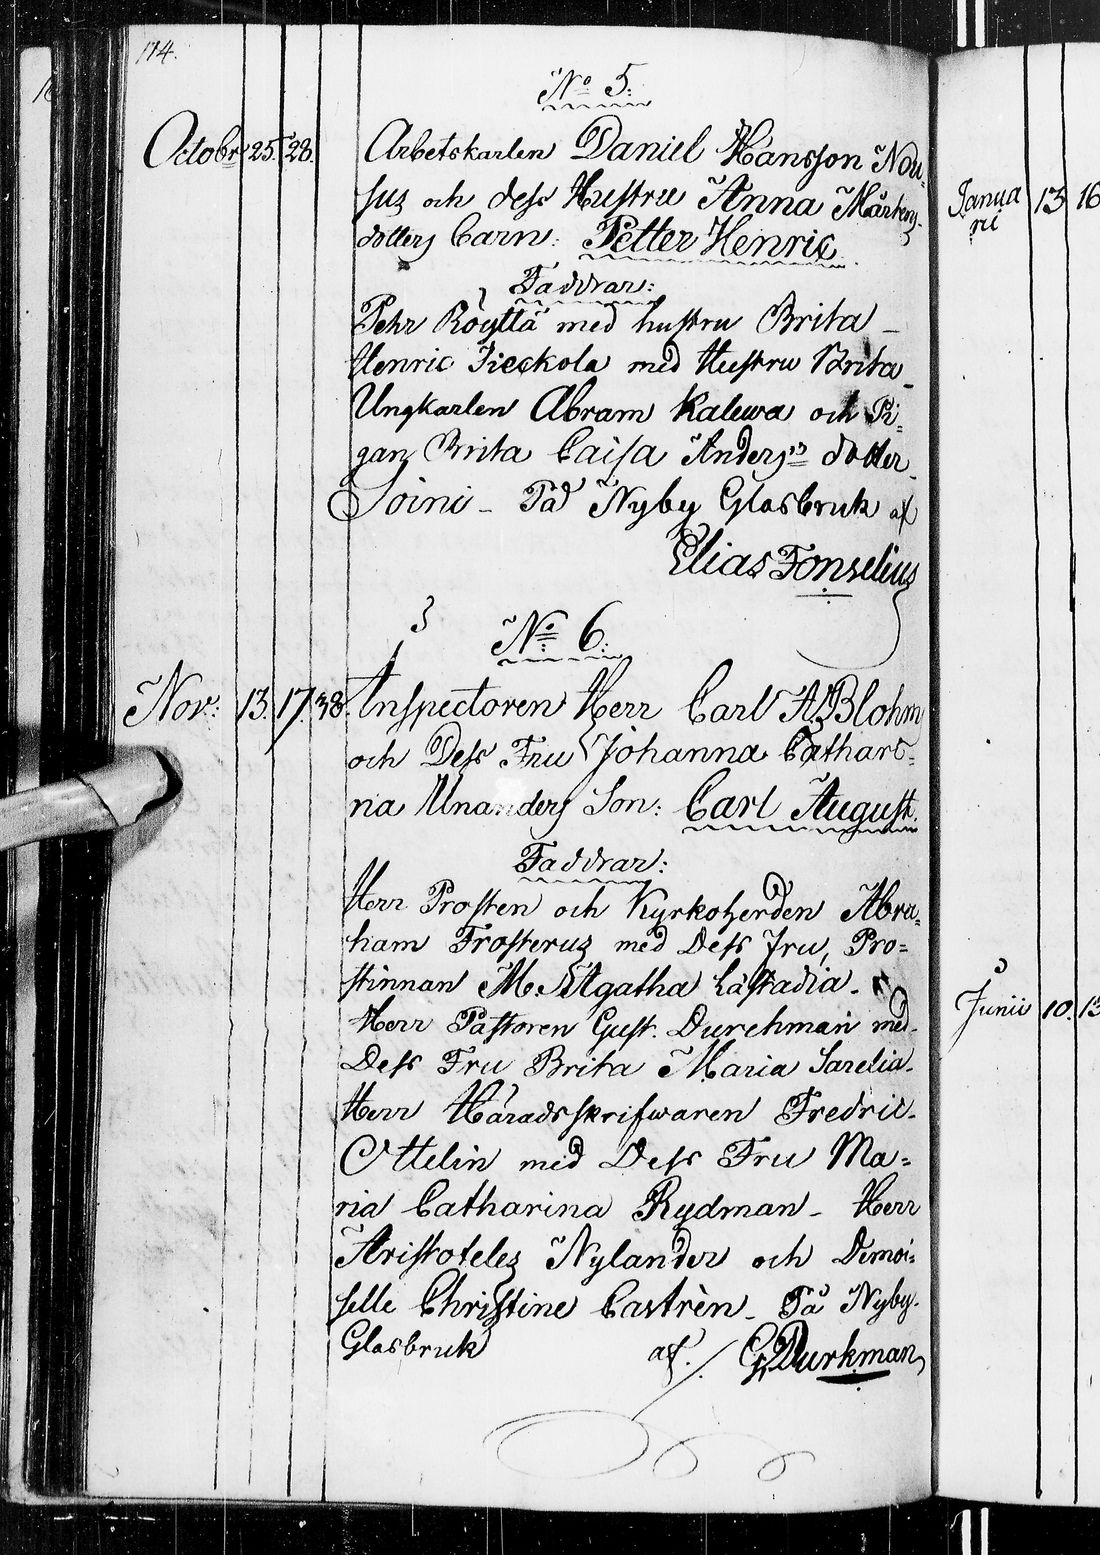 174.
No 5:
Octobr 25. 28. Arbetskarlen Daniel Hansson Nou-
sus och dess Hustru Anna Mårtens-
dotters Barn: Petter Henric.
Faddrar:
Pehr Röyttä med hustru Brita _
Henric Jieckola med Hustru Brita _
Ungkarlen Abram Kalewa och Pi-
gan Brita Caisa Anders dotter
Soini _ På Nyby Glasbruk af
Elias Fonselius
No 6:
Nov: 13. 17. 38. Inspectoren Herr Carl A. Blohm
och Dess Fru Johanna Cathari-
na Unanders Son: Carl August.
Faddrar:
Herr Prosten och Kyrkoherden Abra-
ham Frosterus med Dess Fru, Pro-
stinnan M. Agatha Låstadia _
Herr Pastoren Gust. Durchman med
Dess Fru Brita Maria Sarelia _
Herr Häradsskrifwaren Fredric
Ottelin med Dess Fru Ma-
ria Catharina Rydman _ Herr
Aristoteles Nylander och Demoi-
selle Christine Castrèn _ På Nyby
Glasbruk af. / G. Durkman
Janua
ri 13 16
Junii 10. 13